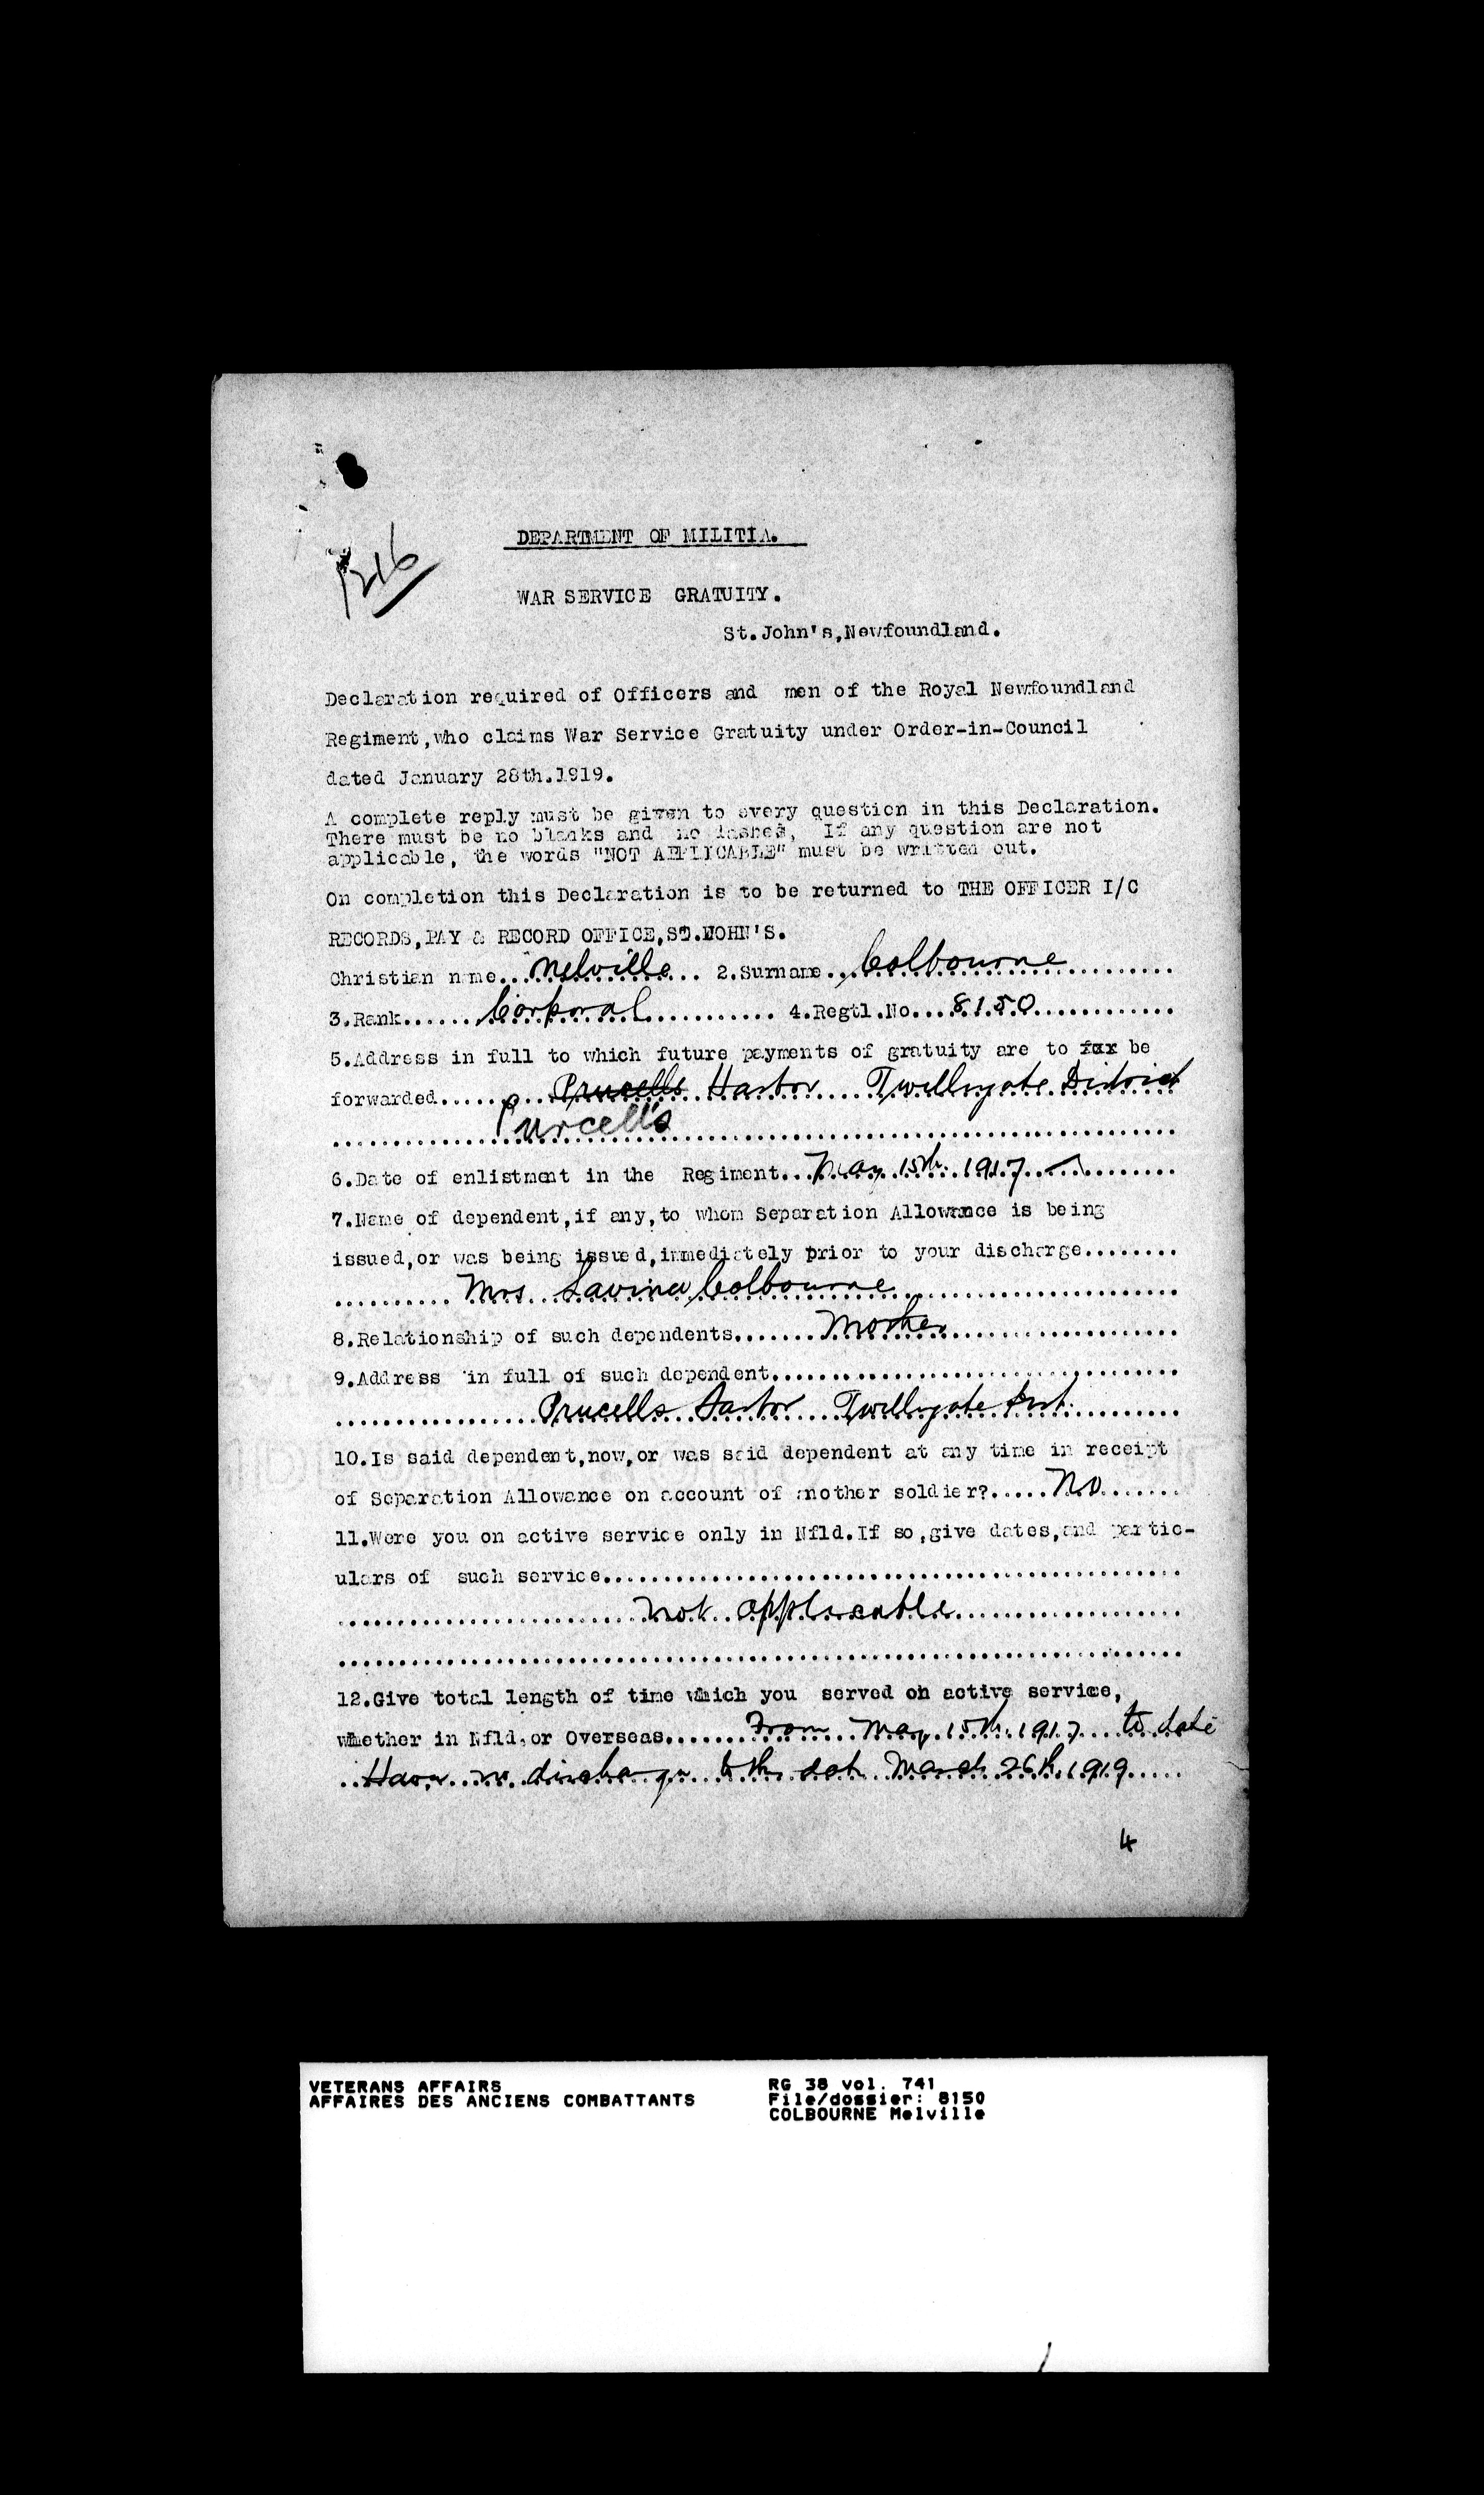 1216
DEPARTMENT OF MILITIA.
WAR SERVICE GRATUITY.
St.John's,Newfoundland.
Declaration required of Officers and men of the Royal Newfoundland
Regiment,who claims War Service Gratuity under Order-in-Council
dated January 28th.1919.
A complete reply must be given to every question in this Declaration.
There must be no blanks and no dashes, If any question are not
applicable, the words "NOT APPLICABLE" must be written out.
On completion this Declaration is to be returned to THE OFFICER I/C
RECORDS,PAY & RECORD OFFICE,ST.JOHN'S.
Christian name...Melville... 2.Surname...Colbourne.........
3.Rank......Corporal........... 4.Regtl.No...8150............
5.Address in full to which future payments of gratuity are to fax be
forwarded.........Prucells Harbor Twillingate District
Purcell's
6.Date of enlistment in the Regiment...May 15th. 1917...........
7.Name of dependent,if any,to whom Separation Allowance is being
issued,or was being issued,immediately prior to your discharge........
..........Mrs. Savina Colbourne.......................
8.Relationship of such dependents.......Mother....................
9.Address in full of such dependent..................................
.................Prucells Harbor Twillingate Dist...........
10.Is said dependent,now,or was said dependent at any time in receipt
of Separation Allowance on account of another soldier?.....No.......
11.Were you on active service only in Nfld.If so,give dates,and partic-
ulars of such service................................................
.........................Not applicable...................
......................................................................
12.Give total length of time which you served on active service,
whether in Nfld.or Overseas.......From May 15th. 1917 to date
..Have no discharge to this date March 26th.1919.....
4
VETERANS AFFAIRS
AFFAIRES DES ANCIENS COMBATTANTS
RG 38 vol. 741
File/dossier: 8150
COLBOURNE Melville